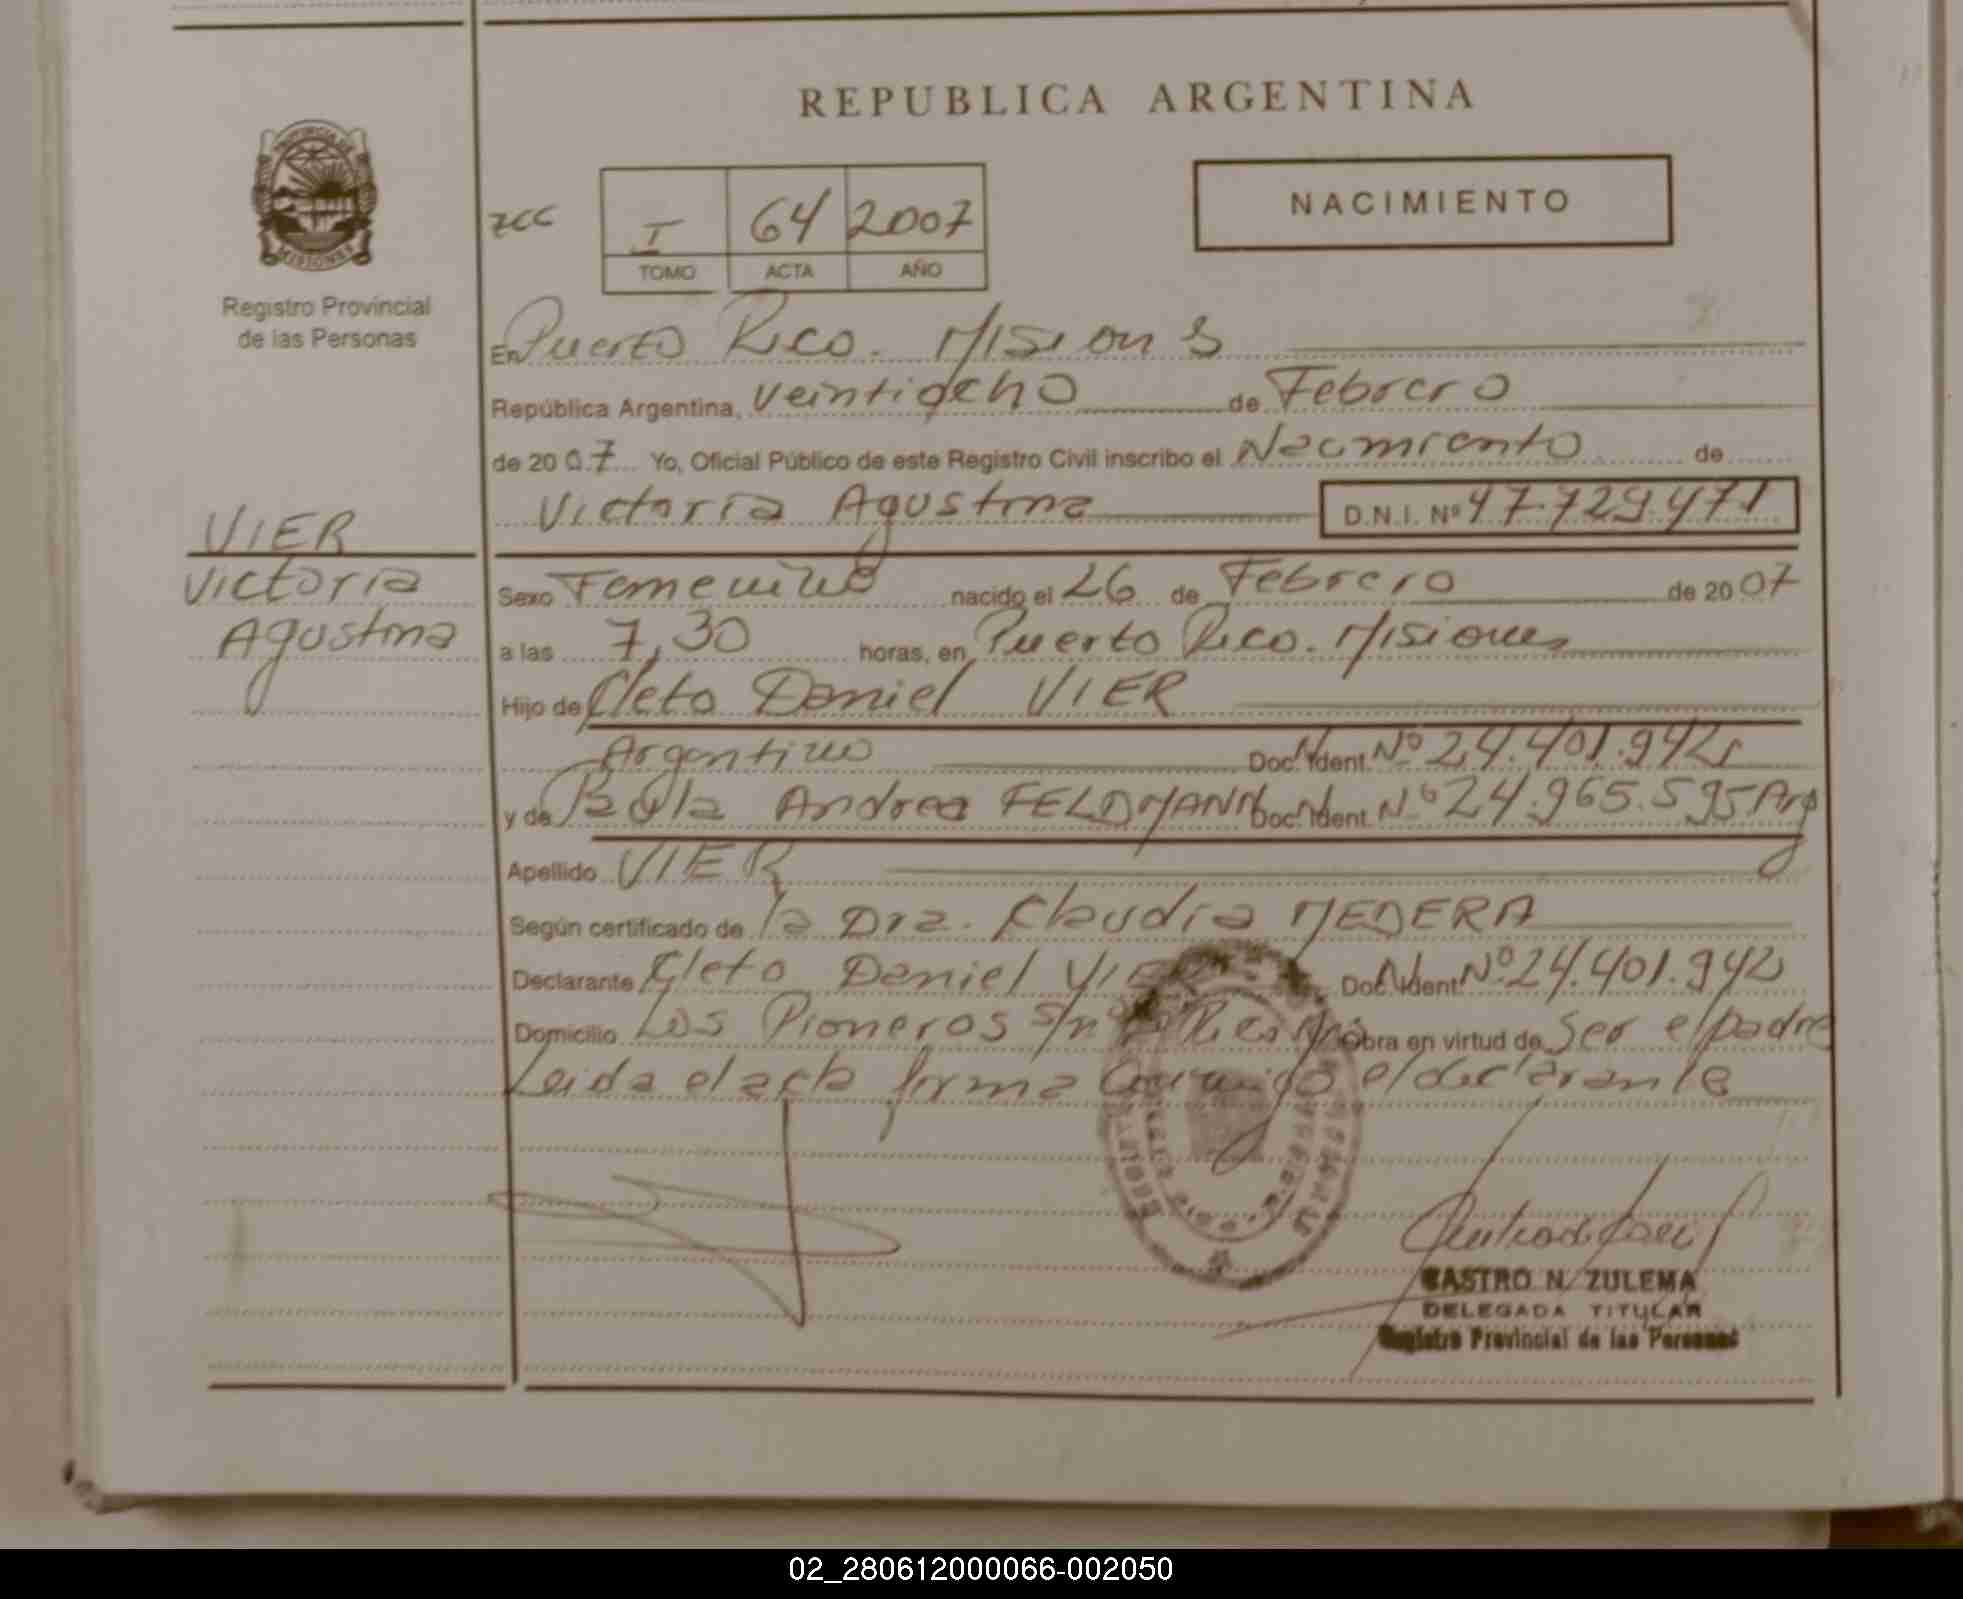 REPUBLICA ARGENTINA
PROVINCIA DE
MISIONES
Registro Provincial
de las Personas
zcc
I 64 2007
TOMO ACTA AÑO
NACIMIENTO
En Puerto Rico. Misiones
República Argentina, veintiocho de Febrero
de 2007 Yo, Oficial Público de este Registro Civil inscribo el Nacimiento de
Victoria Agustina D.N.I. Nº 47.729.471
VIER
Victoria
Agustina
Sexo Femenino nacido el 26 de Febrero de 2007
a las 7,30 horas, en Puerto Rico. Misiones
Hijo de Cleto Daniel VIER
Argentino Doc. Ident. Nº 24.401.942
y de Paola Andrea FELDMANN Doc. Ident. Nº 24.965.595 Arg
Apellido VIER
Según certificado de la Dra. Claudia MEDERA
Declarante Cleto Daniel VIER Doc. Ident. Nº 24.401.942
Domicilio Los Pioneros s/nº Pto Rico Obra en virtud de Ser el padre
Leida el acta firma conmigo el declarante
CASTRO N. ZULEMA
DELEGADA TITULAR
Registro Provincial de las Personas
02_280612000066-002050